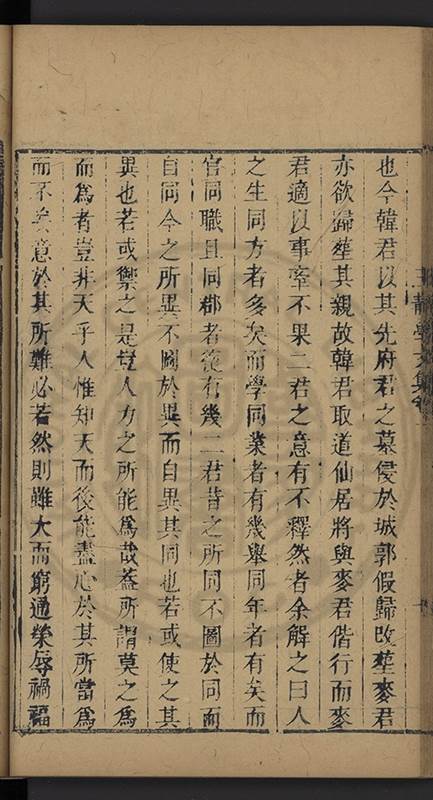 也今韓君以其先府君之墓侵於城郭假歸改塟麥君
亦欲歸塟其親故韓君取道仙居將與麥君偕行而麥
君適以事牽不果二君之意有不釋然者余解之曰人
之生同方者多矣而學同業者有幾舉同年者有矣而
官同職且同郡者復有幾二君昔之所同不圖於同而
自同今之所異不圖於異而自異其同也若或使之其
異也若或禦之是豈人力之所能爲哉葢所謂莫之爲
而爲者豈非天乎人惟知天而後能盡心於其所當爲
而不㒹意於其所難必若然則雖大而窮通榮辱禍福